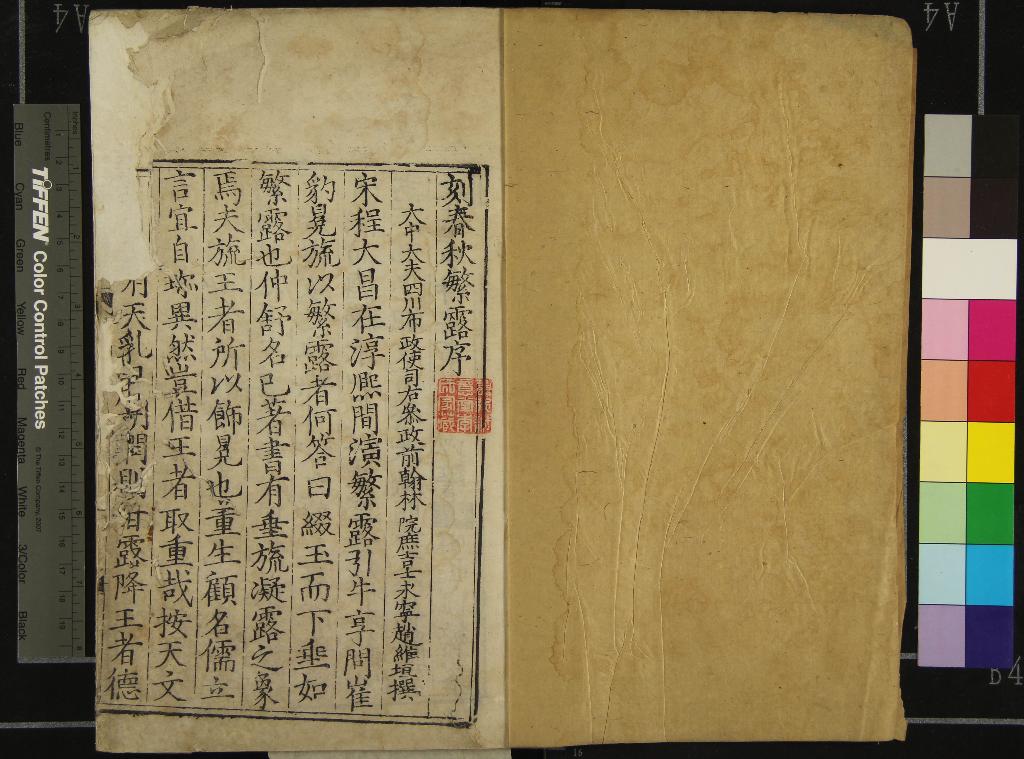 刻春秋繁露序
大中大夫四川布政使司右叅政前翰林院庶吉士永寧趙維垣撰
宋程大昌在淳熈間演繁露引牛亨問崔
豹冕旒以繁露者何答曰綴玉而下垂如
繁露也仲舒名已著書有垂旒凝露之象
焉夫旒王者所以飾冕也董生顧名儒立
言宜自珎異然豈借王者取重哉按天文
天乳 明潤則甘露降王者德
A4
A4
B4
16
TIFFEN Color Control Patches
© The Tiffen Company, 2007
Centimetres
Inches
Blue
Cyan
Green
Yellow
Red
Magenta
White
3/Color
Black